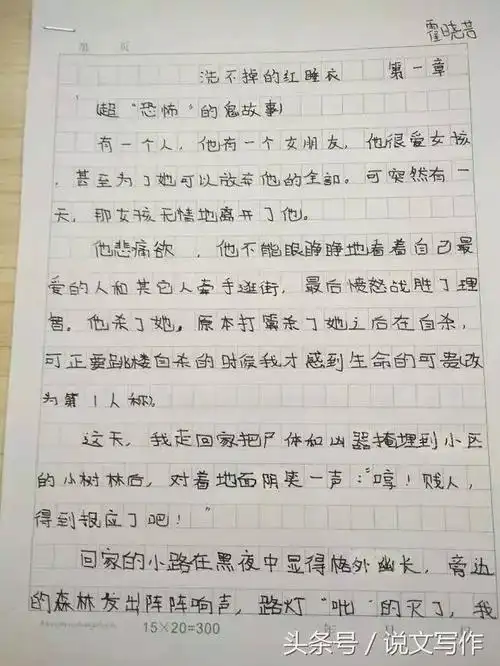 霍晓芸
第 页
洗不掉的红睡衣 第一章
(超“恐怖”的鬼故事)
有一个人，他有一个女朋友，他很爱女孩
，甚至为了她可以放弃他的全部。可突然有一
天，那女孩无情地离开了他。
他悲痛欲 ，他不能眼睁睁地看着自己最
爱的人和其它人牵手逛街，最后愤怒战胜了理
智。他杀了她。原本打算杀了她之后在自杀，
可正要跳楼自杀的时候我才感到生命的可贵(改
为第1人称)。
这天，我走回家把尸体和凶器掩埋到小区
的小树林后，对着地面阴笑一声：“哼！贱人，
得到报应了吧！”
回家的小路在黑夜中显得格外幽长，旁边
的森林发出阵阵响声，路灯“吡”的灭了，我
15×20=300
年 月 日
头条号 / 说文写作